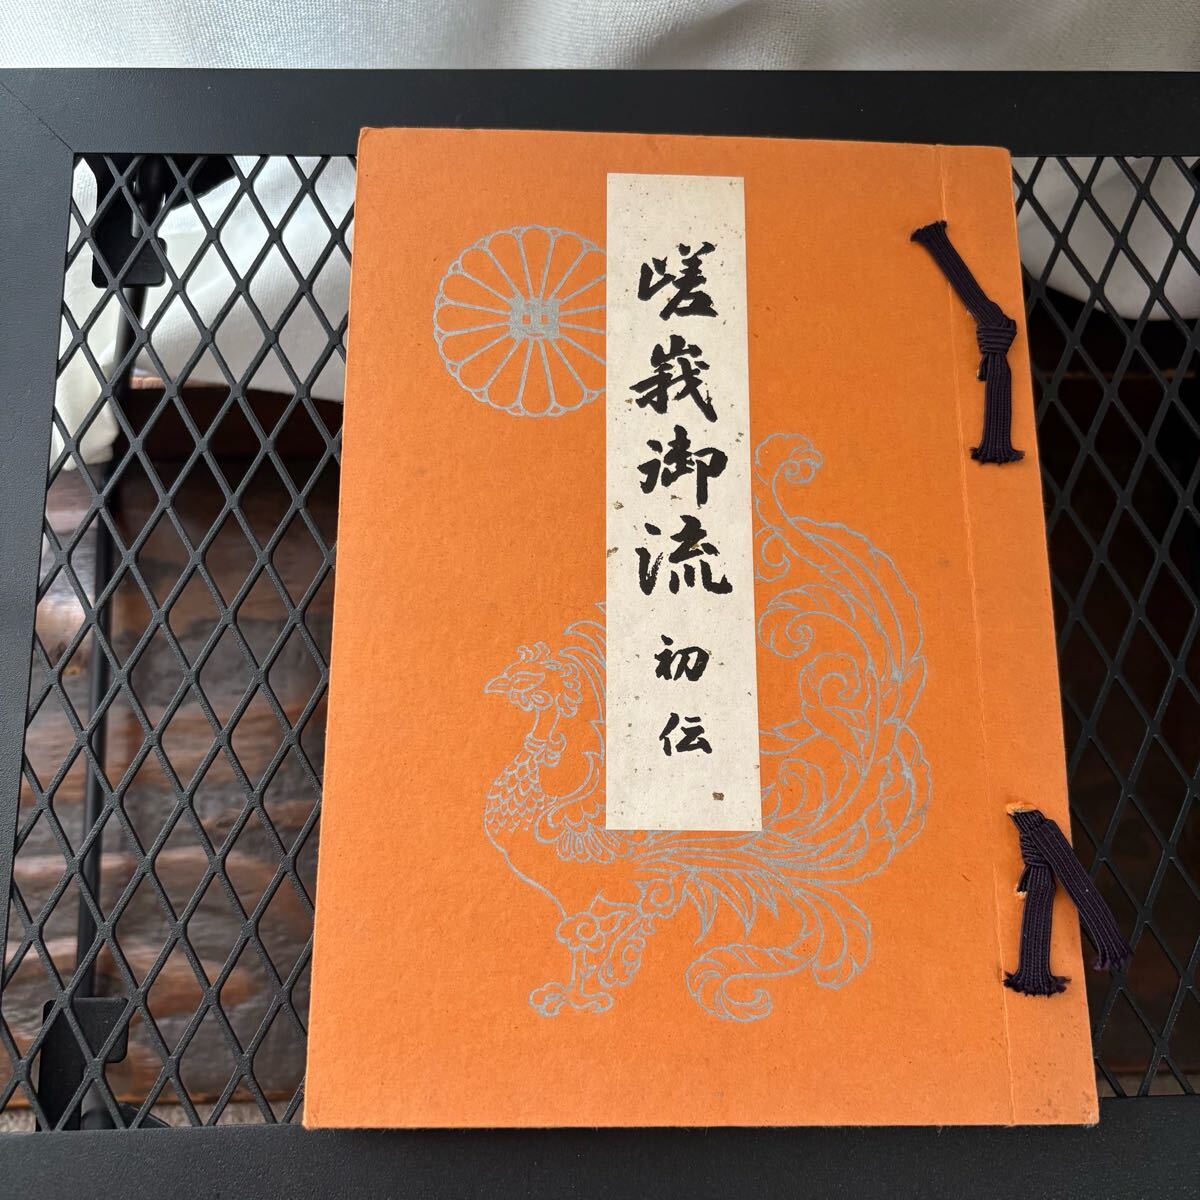 嵯峩御流 初伝